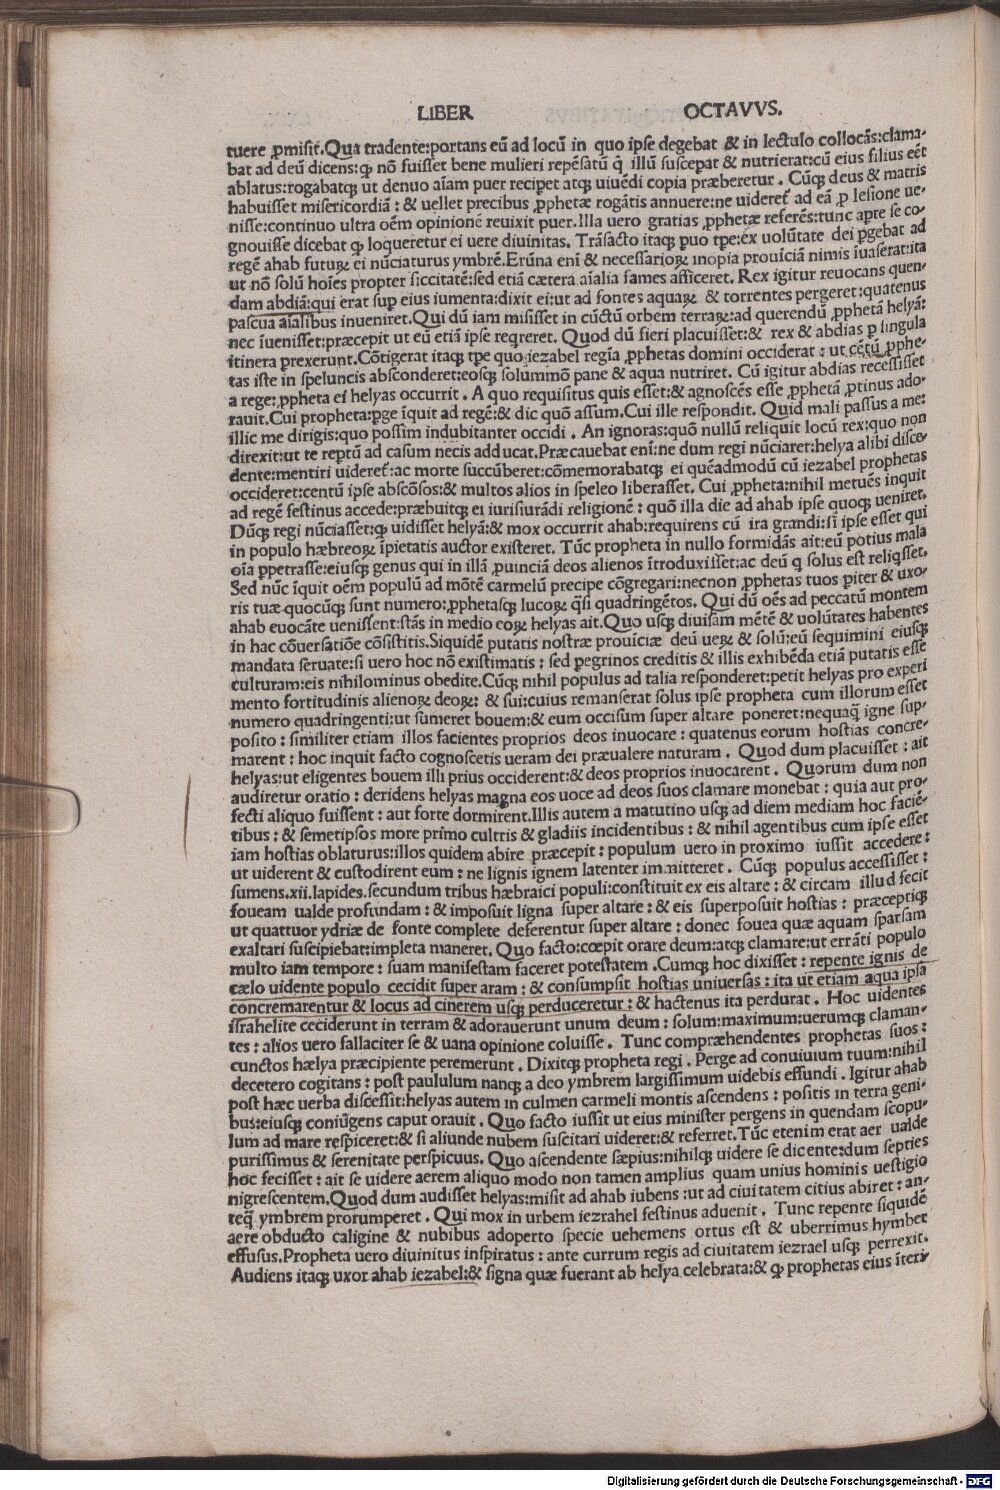 LIBER OCTAVVS.
tuere ꝓmisit.Qua tradente:portans eū ad locū in quo ipse degebat & in lectulo collocãs:clama-
bat ad deū dicens:ꝙ nõ fuisset bene mulieri repēsatū q̇ illū suscepat & nutrierat:cū eius filius eēt
ablatus:rogabatqꝫ ut denuo aīam puer recipet atqꝫ uiuēdi copia præberetur . Cūqꝫ deus & matris
habuisset misericordiã : & uellet precibus ꝓphetæ rogãtis annuere:ne uideret̃ ad eã ꝑ lesione ue-
nisse:continuo ultra oēm opinionē reuixit puer.Illa uero gratias ꝓphetæ referēs:tunc apte se co-
gnouisse dicebat ꝙ loqueretur ei uere diuinitas. Trãsacto itaqꝫ ꝑuo tꝑe:ex uolūtate dei pgebat ad
regē ahab futuꝝ ei nūciaturus ymbrē.Erūna enī & necessarioꝝ inopia prouīciã nimis īuaserat:ita
ut nõ solū hoīes propter siccitatē:sed etiã cætera aīalia fames afficeret. Rex igitur reuocans quen-
dam abdiã:qui erat suꝑ eius iumenta:dixit ei:ut ad fontes aquaꝝ & torrentes pergeret:quatenus
pascua aīalibus inueniret.Qui dū iam misisset in cūctū orbem terraꝝ:ad querendū ꝓphetã helyã:
nec īuenisset:præcepit ut eū etiã ipse reqreret. Quod dū fieri placuisset:& rex & abdias ꝑ singula
itinera ꝑrexerunt.Cõtigerat itaqꝫ tꝑe quo iezabel regīa ꝓphetas domini occiderat : ut cētū ꝓphe-
tas iste in speluncis absconderet:eosqꝫ solummõ pane & aqua nutriret. Cū igitur abdias recessisset
a rege:ꝓpheta ei helyas occurrit . A quo requisitus quis esset:& agnoscēs esse ꝓphetã ꝓtinus ado-
rauit.Cui propheta:pge īquit ad regē:& dic quõ assum.Cui ille respondit. Quid mali passus a me:
illic me dirigis:quo possim indubitanter occidi . An ignoras:quõ nullū reliquit locū rex:quo non
direxit:ut te reptū ad casum necis adducat.Præcauebat enī:ne dum regi nūciaret:helya alibi disce-
dente:mentiri uideret̃:ac morte succūberet:cõmemorabatqꝫ ei quēadmodū cū iezabel prophetas
occideret:centū ipse abscõsos:& multos alios in speleo liberasset. Cui ꝓpheta:nihil metuēs inquit
ad regē festinus accede:præbuitqꝫ ei iurisiurãdi religionē : quõ illa die ad ahab ipse quoqꝫ ueniret.
Dūqꝫ regi nūciasset:ꝙ uidisset helyã:& mox occurrit ahab:requirens cū ira grandi:si ipse esset qui
in populo hæbreoꝝ īpietatis auctor existeret. Tūc propheta in nullo formidãs ait:eū potius mala
oīa ꝑpetrasse:eiusqꝫ genus qui in illã ꝓuinciã deos alienos ītroduxisset:ac deū q solus est reliqsset.
Sed nūc īquit oēm populū ad mõtē carmelū precipe cõgregari:necnon ꝓphetas tuos ꝑiter & uxo-
ris tuæ quocūqꝫ sunt numero:ꝓphetasqꝫ lucoꝝ q̃si quadringētos. Qui dū oēs ad peccatū montem
ahab euocãte uenissent:stãs in medio eoꝝ helyas ait.Quo usqꝫ diuisam mētē & uolūtates habentes
in hac cõuersatiõe cõsistitis.Siquidē putatis nostræ prouīciæ deū ueꝝ & solū:eū sequimini eiusqꝫ
mandata seruate:si uero hoc nõ existimatis : sed pegrinos creditis & illis exhibēda etiã putatis esse
culturam:eis nihilominus obedite.Cūqꝫ nihil populus ad talia responderet:petit helyas pro experi
mento fortitudinis alienoꝝ deoꝝ: & sui:cuius remanserat solus ipse propheta cum illorum esset
numero quadringenti:ut sumeret bouem:& eum occisum super altare poneret:nequaq̃ igne sup-
posito : similiter etiam illos facientes proprios deos inuocare : quatenus eorum hostias concre-
marent : hoc inquit facto cognoscetis ueram dei præualere naturam . Quod dum placuisset : ait
helyas:ut eligentes bouem illi prius occiderent:& deos proprios inuocarent . Quorum dum non
audiretur oratio : deridens helyas magna eos uoce ad deos suos clamare monebat : quia aut pro-
fecti aliquo fuissent : aut forte dormirent.Illis autem a matutino usqꝫ ad diem mediam hoc faciē-
tibus : & semetipsos more primo cultris & gladiis incidentibus : & nihil agentibus cum ipse esset
iam hostias oblaturus:illos quidem abire præcepit : populum uero in proximo iussit accedere :
ut uiderent & custodirent eum : ne lignis ignem latenter immitteret . Cūqꝫ populus accessisset :
sumens.xii.lapides.secundum tribus hæbraici populi:constituit ex eis altare : & circam illud fecit
foueam ualde profundam : & imposuit ligna super altare : & eis superposuit hostias : præcepitqꝫ
ut quattuor ydriæ de fonte complete deferentur super altare : donec fouea quæ aquam sparsam
exaltari suscipiebat:impleta maneret. Quo facto:cœpit orare deum:atqꝫ clamare:ut errãti populo
multo iam tempore : suam manifestam faceret potestatem .Cumqꝫ hoc dixisset : repente ignis de
cælo uidente populo cecidit super aram : & consumpsit hostias uniuersas : ita ut etiam aqua ipsa
concremarentur & locus ad cinerem usqꝫ perduceretur : & hactenus ita perdurat . Hoc uidentes
israhelite ceciderunt in terram & adorauerunt unum deum : solum:maximum:uerumqꝫ claman-
tes : alios uero fallaciter se & uana opinione coluisse . Tunc compræhendentes prophetas suos :
cunctos hælya præcipiente peremerunt . Dixitqꝫ propheta regi . Perge ad conuiuium tuum:nihil
decetero cogitans : post paululum nanqꝫ a deo ymbrem largissimum uidebis effundi . Igitur ahab
post hæc uerba discessit:helyas autem in culmen carmeli montis ascendens : positis in terra geni-
bus:eiusqꝫ coniūgens caput orauit . Quo facto iussit ut eius minister pergens in quendam scopu-
lum ad mare respiceret:& si aliunde nubem suscitari uideret:& referret.Tūc etenim erat aer ualde
purissimus & serenitate perspicuus. Quo ascendente sæpius:nihilqꝫ uidere se dicente:dum septies
hoc fecisset : ait se uidere aerem aliquo modo non tamen amplius quam unius hominis uestigio
nigrescentem.Quod dum audisset helyas:misit ad ahab iubens :ut ad ciuitatem citius abiret : an-
teq̃ ymbrem prorumperet . Qui mox in urbem iezrahel festinus aduenit . Tunc repente siquidē
aere obducto caligine & nubibus adoperto specie uehemens ortus est & uberrimus hymber
effusus.Propheta uero diuinitus inspiratus : ante currum regis ad ciuitatem iezrael usqꝫ perrexit.
Audiens itaqꝫ uxor ahab iezabel:& signa quæ fuerant ab helya celebrata:& ꝙ prophetas eius īteri-
Digitalisierung gefördert durch die Deutsche Forschungsgemeinschaft - DFG